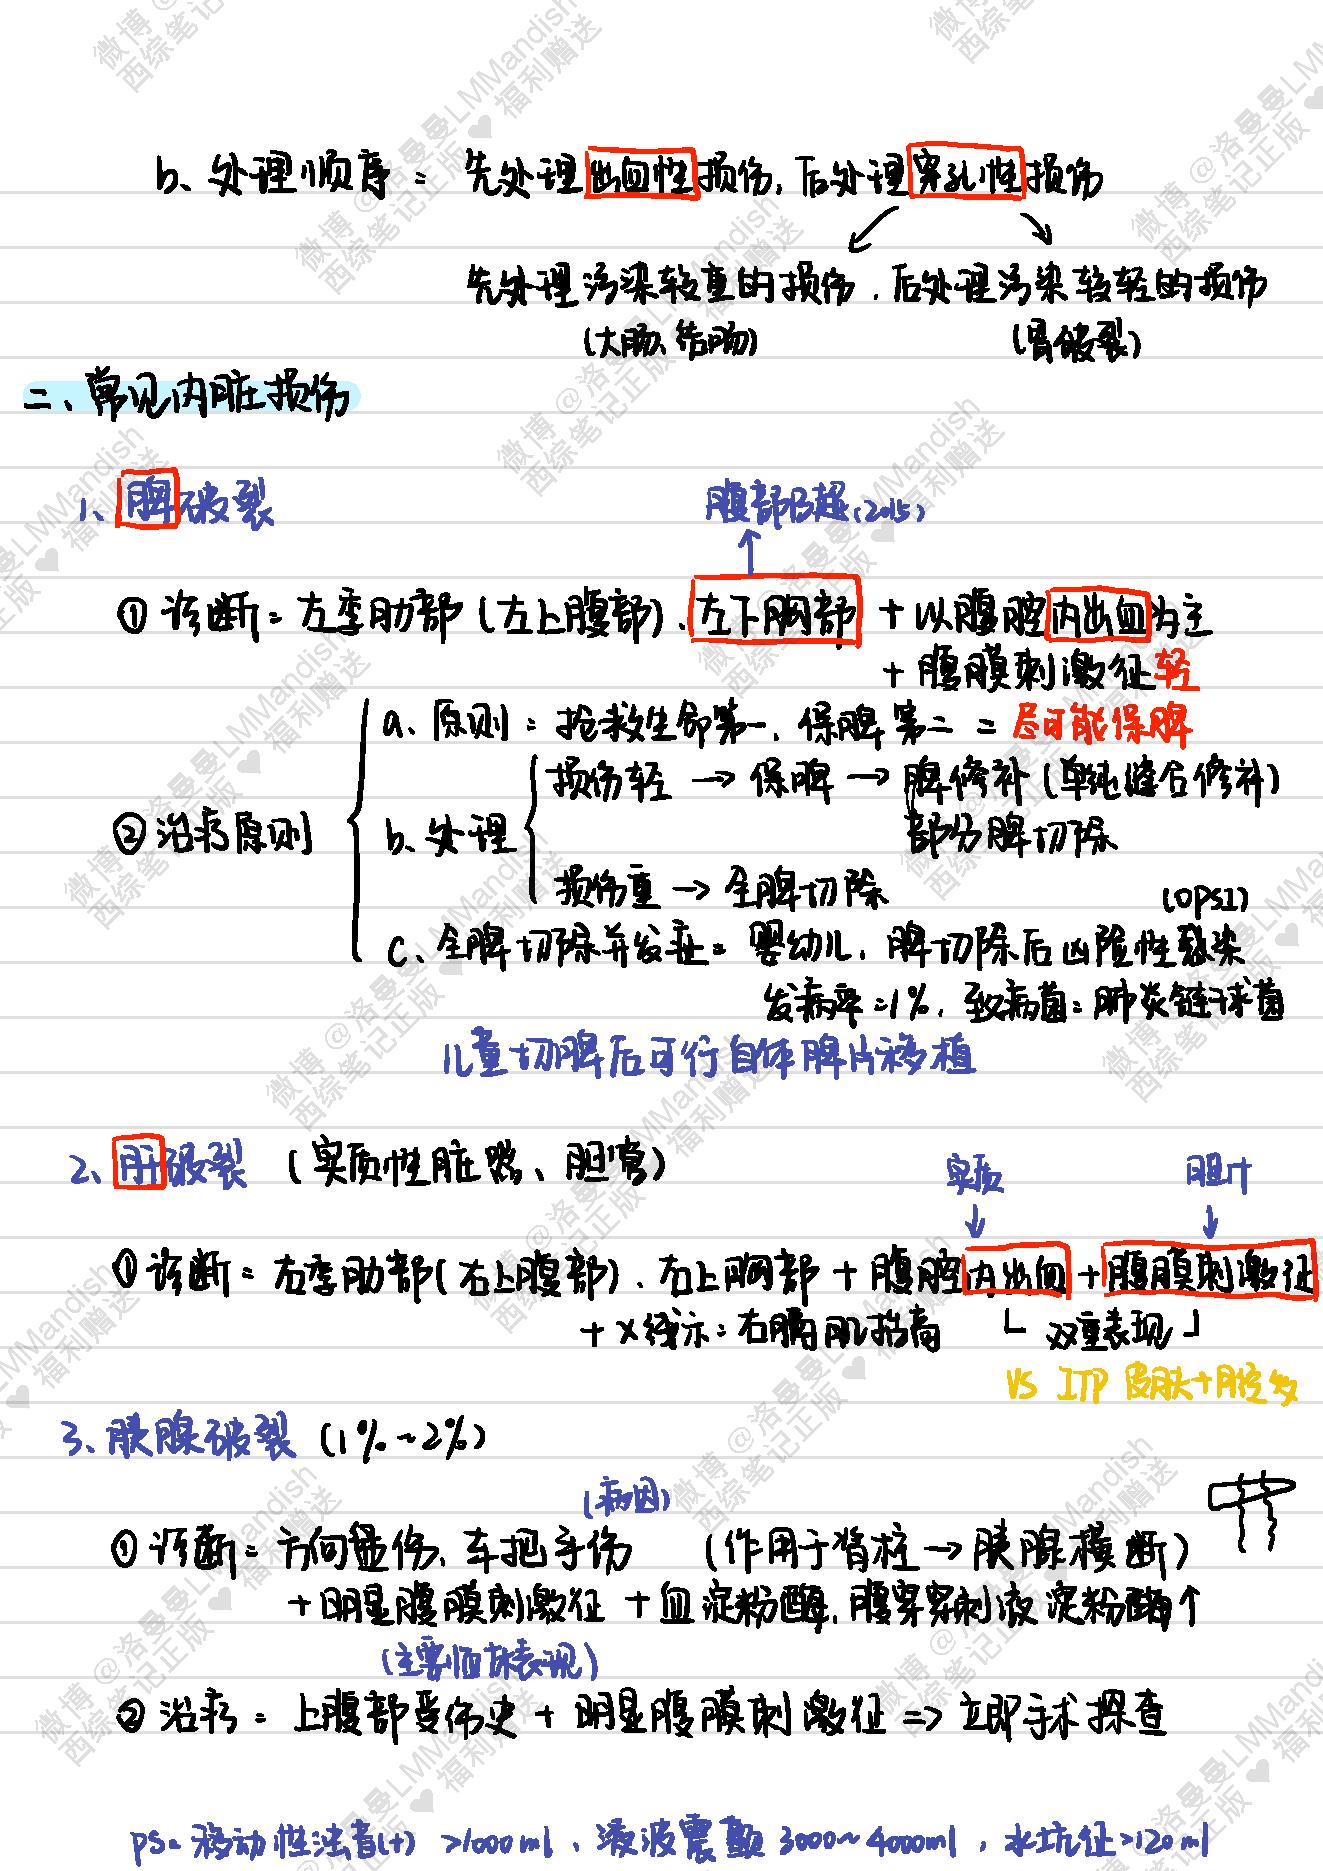 b、处理顺序：先处理出血性损伤，后处理穿孔性损伤
先处理污染较重的损伤，后处理污染较轻的损伤
(大肠、结肠) (胃破裂)
二、常见内脏损伤
1、脾破裂
腹部B超(2015)
① 诊断：左季肋部(左上腹部)、左下胸部 + 以腹腔内出血为主
+ 腹膜刺激征轻
② 治疗原则
a、原则：抢救生命第一，保脾第二 = 尽可能保脾
b、处理
损伤轻 → 保脾 → 脾修补(单纯缝合修补)
部分脾切除
损伤重 → 全脾切除
(OPSI)
c、全脾切除并发症：婴幼儿，脾切除后凶险性感染
发病率=1%，致病菌：肺炎链球菌
儿童切脾后可行自体脾片移植
2、肝破裂 (实质性脏器、胆管)
实质 胆汁
① 诊断：右季肋部(右上腹部)、右上胸部 + 腹腔内出血 + 腹膜刺激征
+ X线示：右膈肌抬高 双重表现
VS ITP 皮肤+腔多
3、胰腺破裂 (1%~2%)
(病因)
① 诊断：方向盘伤、车把手伤 (作用于脊柱 → 胰腺横断)
+ 明显腹膜刺激征 + 血淀粉酶，腹穿穿刺液淀粉酶↑
(主要临床表现)
② 治疗：上腹部受伤史 + 明显腹膜刺激征 => 立即手术探查
ps. 移动性浊音(+) >1000ml、液波震颤 3000~4000ml，水坑征>120ml
微博@洛曼曼LMMandish
西综笔记正版♥福利赠送